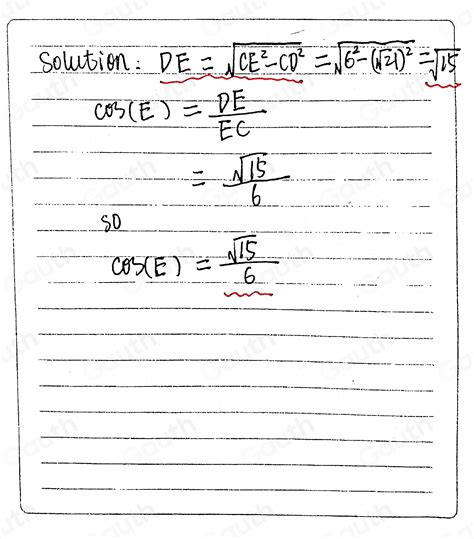 Solution: DE = √(CE²-CD²) = √(6²-(√21)²) = √15
cos(E) = DE/EC
= √15/6
so
cos(E) = √15/6